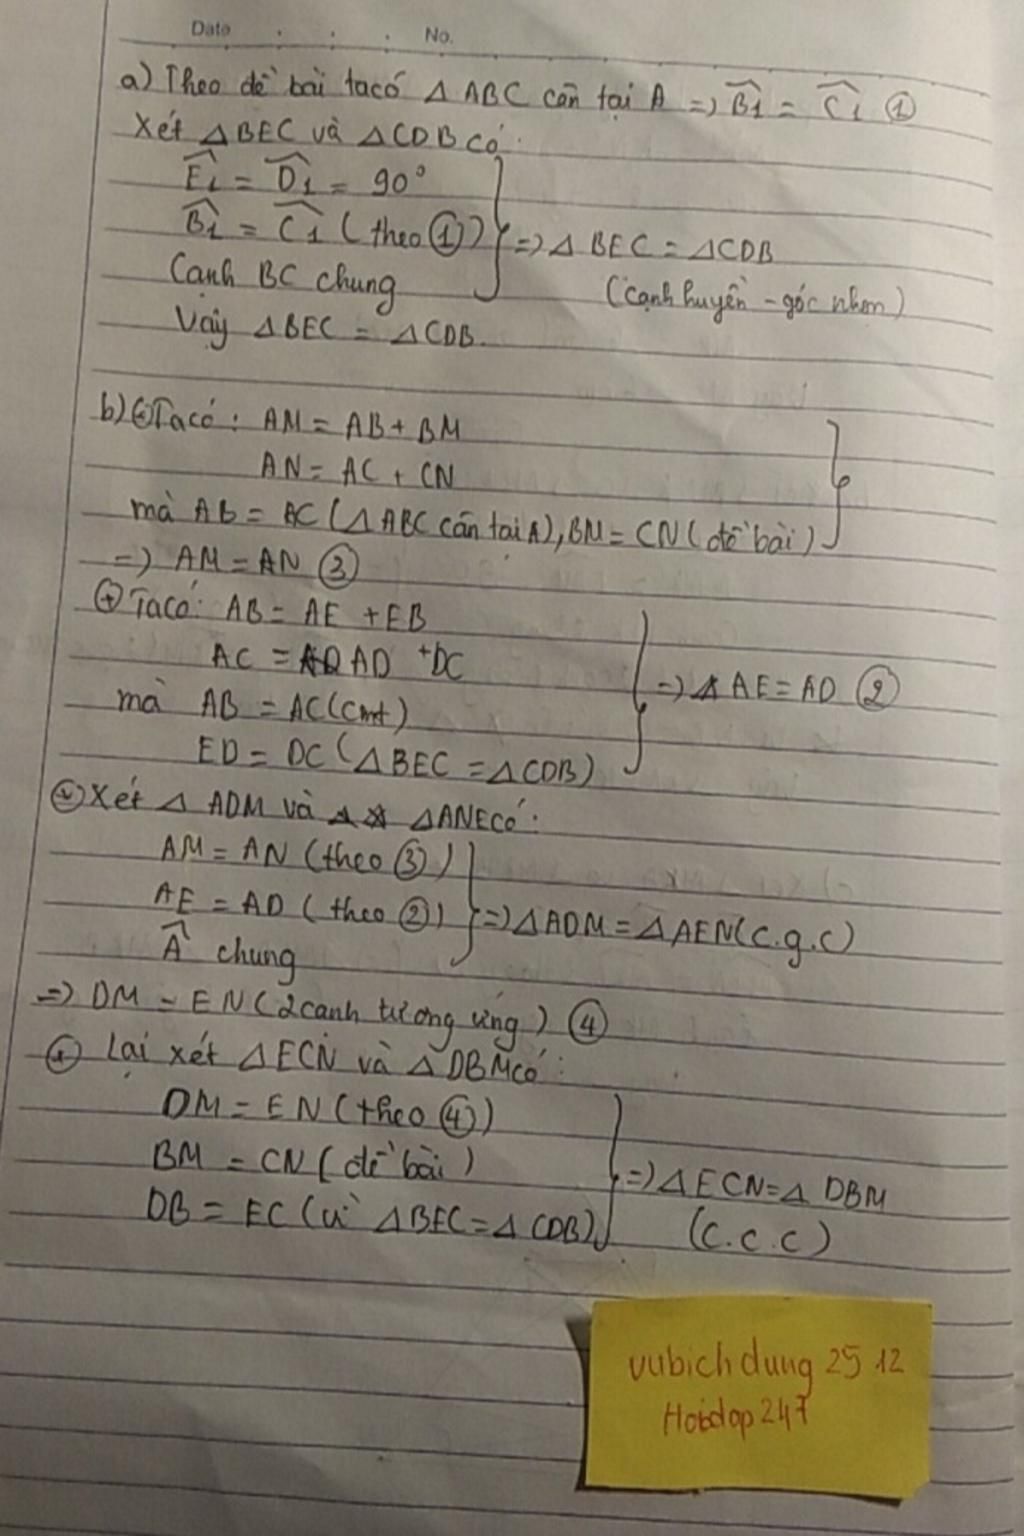 Date . . . No.
a) Theo đề bài ta có △ ABC cân tại A => B̂1 = Ĉ1 ①
Xét △BEC và △CDB có:
Ê1 = D̂1 = 90°
B̂1 = Ĉ1 (theo ①) => △ BEC = △CDB
Cạnh BC chung (cạnh huyền - góc nhọn)
Vậy △BEC = △CDB.
b) ⊕ Ta có: AM = AB + BM
AN = AC + CN
mà AB = AC (△ABC cân tại A), BM = CN (đề bài)
=> AM = AN ③
⊕ Ta có: AB = AE + EB
AC = AD + DC => AE = AD ②
mà AB = AC (cmt)
ED = DC (△BEC = △CDB)
⊕ Xét △ ADM và △ANE có:
AM = AN (theo ③)
AE = AD (theo ②) => △ADM = △AEN (c.g.c)
Â chung
=> DM = EN (2 cạnh tương ứng) ④
⊕ Lại xét △ECN và △DBM có:
DM = EN (theo ④)
BM = CN (đề bài) => △ECN = △ DBM
DB = EC (vì △BEC = △CDB) (c.c.c)
vubichdung 25 12
Hoidap247